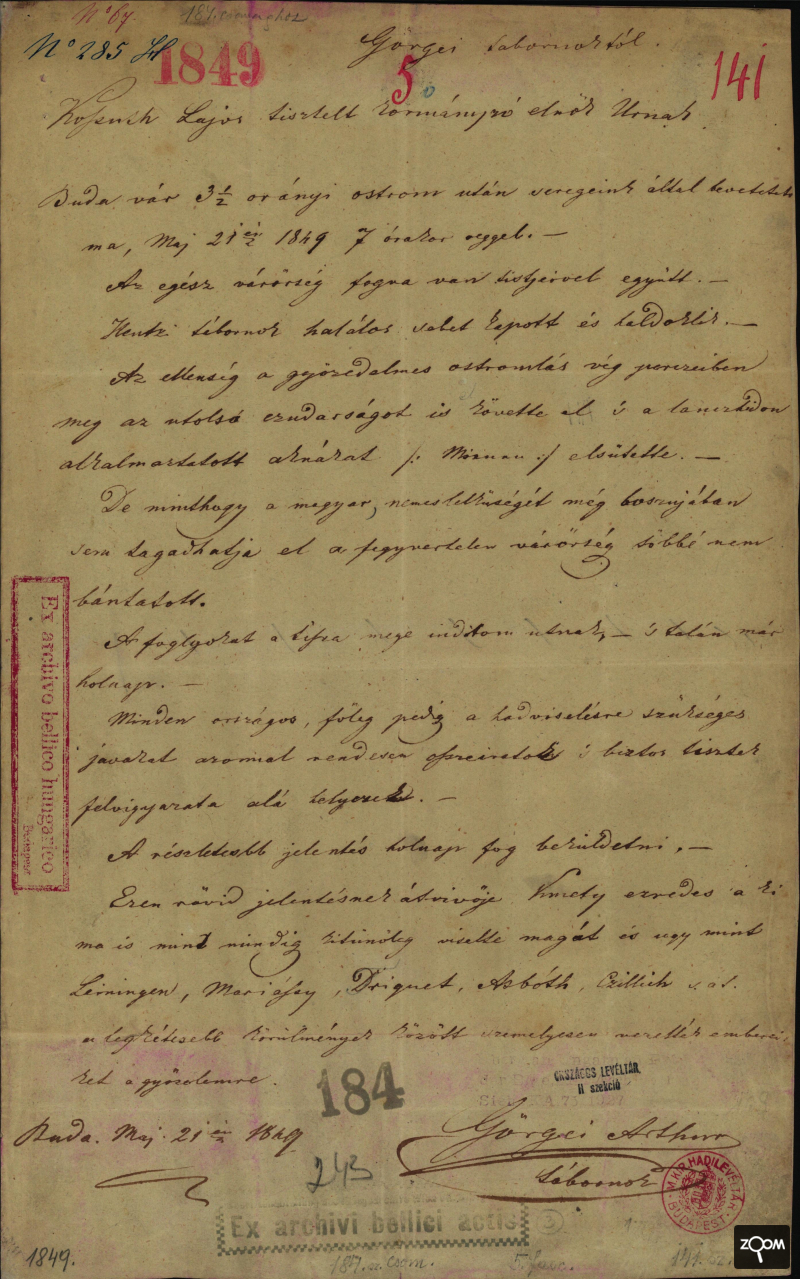 No 67.
No 285
1849
Görgei tábornoktól.
5
141
Kossuth Lajos tisztelt kormányzó elnök Urnak
Buda vár 3 1/2 orányi ostrom után seregeink által bevetetett
ma, Maj 21 én 1849 7 órakor reggel. —
Az egész várörség fogva van tistjeivel együtt. —
Hentzi tábornok halálos sebet kapott és haldoklik. —
Az ellenség a gyözedelmes ostromlás vég perczeiben
meg az utolsó czudarságot is követte el 's a lanczhidon
alkalmaztatott aknákat /: Minnen :/ elsütette. —
De minthogy a magyar, nemeslelküségét még boszujában
sem tagadhatja el a fegyvertelen várörség többé nem
bántatott.
A foglyokat a Tisza mege inditom utnak, — 's talán már
holnap. —
Minden országos, föleg pedig a hadviselésre szükséges
javakat azonnal rendesen összeiratok 's biztos tisztek
felvigyazata alá helyezek. —
A részletesbb jelentés holnap fog beküldetni. —
Ezen rövid jelentésnek átvivöje Kmety ezredes a ki
ma is mint mindig kitünöleg viselte magát és ugy mint
Leiningen, Mariássy, Driquet, Asbóth, Czillich s. a t.
a legkétesebb körülmények között személyesen vezették emberei-
ket a gyözelemre.
184
ORSZÁGOS LEVÉLTÁR
II szekció
Buda. Maj. 21 én 1849
Görgei Arthur
tábornok
243
M. KIR. HADILEVÉLTÁR
BUDAPEST
Ex archivo bellico hungarico
Budapest
Ex archivi bellici actis
1849.
5. fasc.
ZOOM